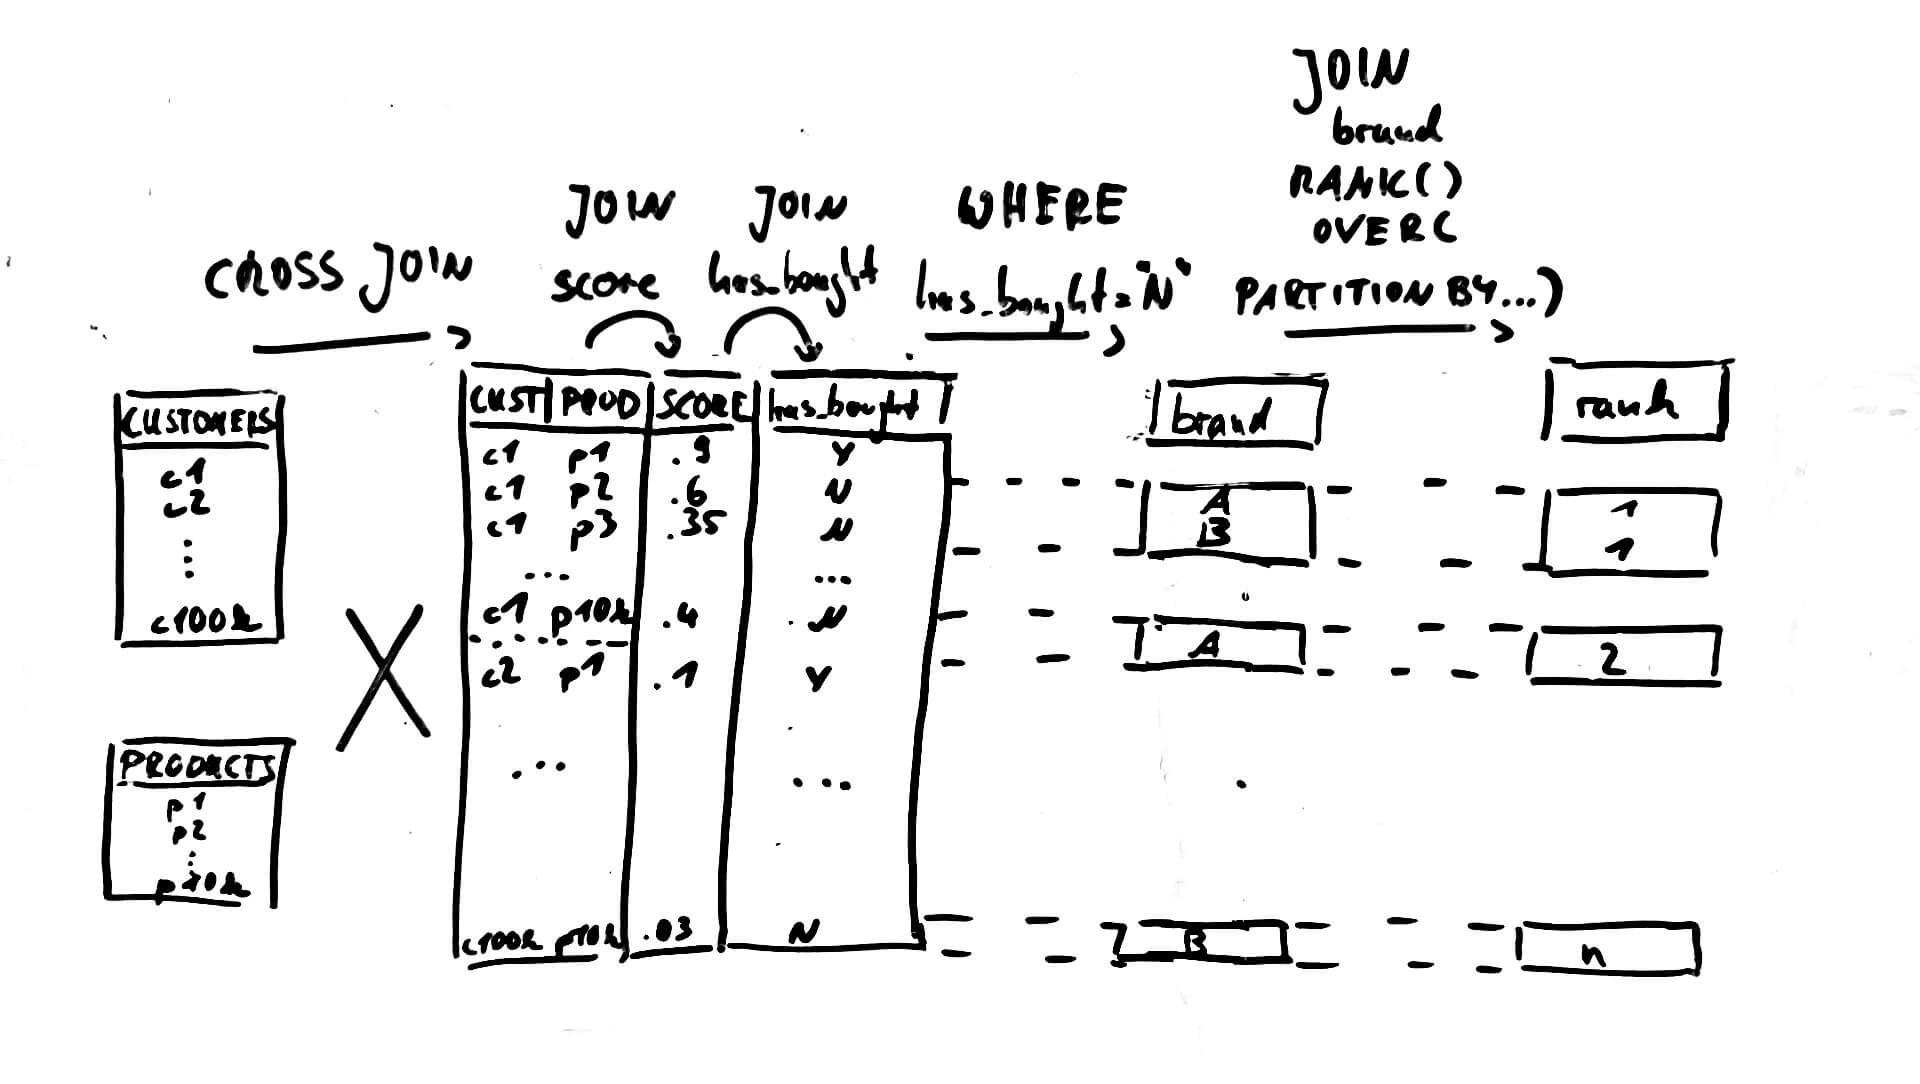 JOIN
brand
RANK()
OVER(
PARTITION BY...)
JOIN
score
JOIN
has_bought
WHERE
has_bought="N"
CROSS JOIN
CUSTOMERS
c1
c2
...
c100k
PRODUCTS
p1
p2
...
p10k
CUST PROD SCORE has_bought
c1 p1 .9 Y
c1 p2 .6 N
c1 p3 .35 N
... ...
c1 p10k .4 N
c2 p1 .1 Y
... ...
c100k p10k .03 N
brand
A
B
A
B
rank
1
1
2
n